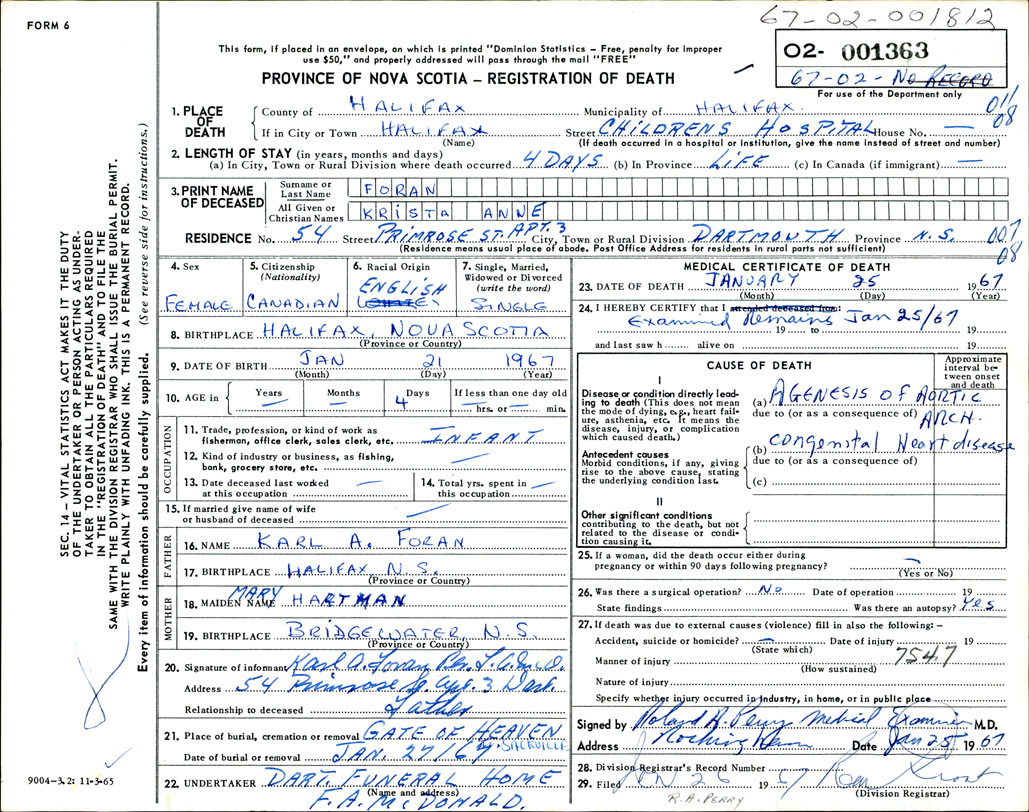 FORM 6
67-02-001812
This form, if placed in an envelope, on which is printed "Dominion Statistics – Free, penalty for improper
use $50," and properly addressed will pass through the mail "FREE"
02- 001363
67-02- No RECORD
PROVINCE OF NOVA SCOTIA – REGISTRATION OF DEATH
For use of the Department only
1. PLACE OF DEATH
County of HALIFAX Municipality of HALIFAX
011
08
If in City or Town HALIFAX Street CHILDRENS HOSPITAL House No. —
(Name) (If death occurred in a hospital or institution, give the name instead of street and number)
2. LENGTH OF STAY (in years, months and days)
(a) In City, Town or Rural Division where death occurred 4 DAYS (b) In Province LIFE (c) In Canada (if immigrant) —
3. PRINT NAME OF DECEASED
Surname or Last Name FORAN
All Given or Christian Names KRISTA ANNE
RESIDENCE No. 54 Street PRIMROSE ST. APT. 3 City, Town or Rural Division DARTMOUTH Province N.S.
007
08
(Residence means usual place of abode. Post Office Address for residents in rural parts not sufficient)
4. Sex
FEMALE
5. Citizenship (Nationality)
CANADIAN
6. Racial Origin
ENGLISH
7. Single, Married, Widowed or Divorced (write the word)
SINGLE
8. BIRTHPLACE HALIFAX, NOVA SCOTIA
(Province or Country)
9. DATE OF BIRTH JAN 21 1967
(Month) (Day) (Year)
10. AGE in Years — Months — Days 4 If less than one day old — hrs. or — min.
OCCUPATION
11. Trade, profession, or kind of work as fisherman, office clerk, sales clerk, etc. INFANT
12. Kind of industry or business, as fishing, bank, grocery store, etc. —
13. Date deceased last worked at this occupation —
14. Total yrs. spent in this occupation —
15. If married give name of wife or husband of deceased —
FATHER
16. NAME KARL A. FORAN
17. BIRTHPLACE HALIFAX N.S.
(Province or Country)
MOTHER
18. MAIDEN NAME MARY HARTMAN
19. BIRTHPLACE BRIDGEWATER, N.S.
(Province or Country)
20. Signature of informant Karl A. Foran Per.
Address 54 Primrose St. Apt. 3 Dart.
Relationship to deceased Father
21. Place of burial, cremation or removal GATE OF HEAVEN
SACKVILLE
Date of burial or removal JAN. 27/67
22. UNDERTAKER DART. FUNERAL HOME
(Name and address)
F.A. McDONALD.
MEDICAL CERTIFICATE OF DEATH
23. DATE OF DEATH JANUARY 25 1967
(Month) (Day) (Year)
24. I HEREBY CERTIFY that I attended deceased from:
Examined Remains Jan 25/67
19 to 19
and last saw h alive on 19
CAUSE OF DEATH
Approximate interval between onset and death
I
Disease or condition directly leading to death (This does not mean the mode of dying, e.g., heart failure, asthenia, etc. It means the disease, injury, or complication which caused death.)
(a) AGENESIS OF AORTIC ARCH.
due to (or as a consequence of)
Antecedent causes
Morbid conditions, if any, giving rise to the above cause, stating the underlying condition last.
(b) congenital Heart disease
due to (or as a consequence of)
(c)
II
Other significant conditions
contributing to the death, but not related to the disease or condition causing it.
25. If a woman, did the death occur either during pregnancy or within 90 days following pregnancy? —
(Yes or No)
26. Was there a surgical operation? No Date of operation 19
State findings Was there an autopsy? Yes
27. If death was due to external causes (violence) fill in also the following: –
Accident, suicide or homicide? — Date of injury 19
(State which)
7547
Manner of injury
(How sustained)
Nature of injury
Specify whether injury occurred in industry, in home, or in public place
Signed by Roland H. Perry Medical Examiner M.D.
Address Date Jan 25 1967
28. Division Registrar's Record Number
29. Filed JAN 26 1967
(Division Registrar)
R.H. PERRY
SEC. 14 – VITAL STATISTICS ACT MAKES IT THE DUTY
OF THE UNDERTAKER OR PERSON ACTING AS UNDER-
TAKER TO OBTAIN ALL THE PARTICULARS REQUIRED
IN THE "REGISTRATION OF DEATH" AND TO FILE THE
SAME WITH THE DIVISION REGISTRAR WHO SHALL ISSUE THE BURIAL PERMIT.
WRITE PLAINLY WITH UNFADING INK. THIS IS A PERMANENT RECORD.
Every item of information should be carefully supplied. (See reverse side for instructions.)
9004-3.2: 11-3-65